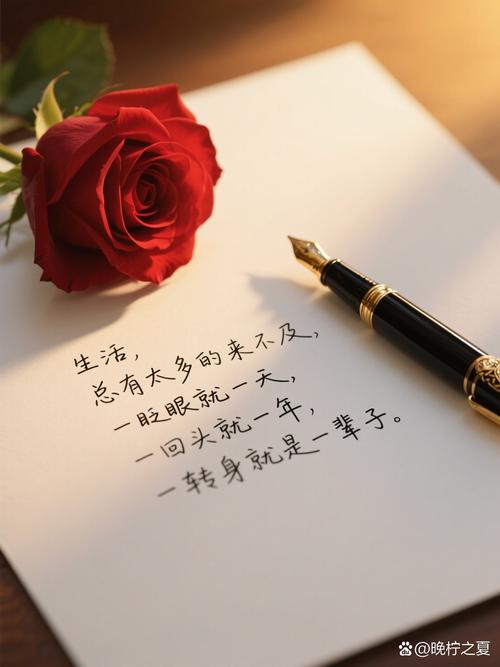 生活,
总有太多的来不及,
一眨眼就一天,
一回头就一年,
一转身就是一辈子。
@晚柠之夏